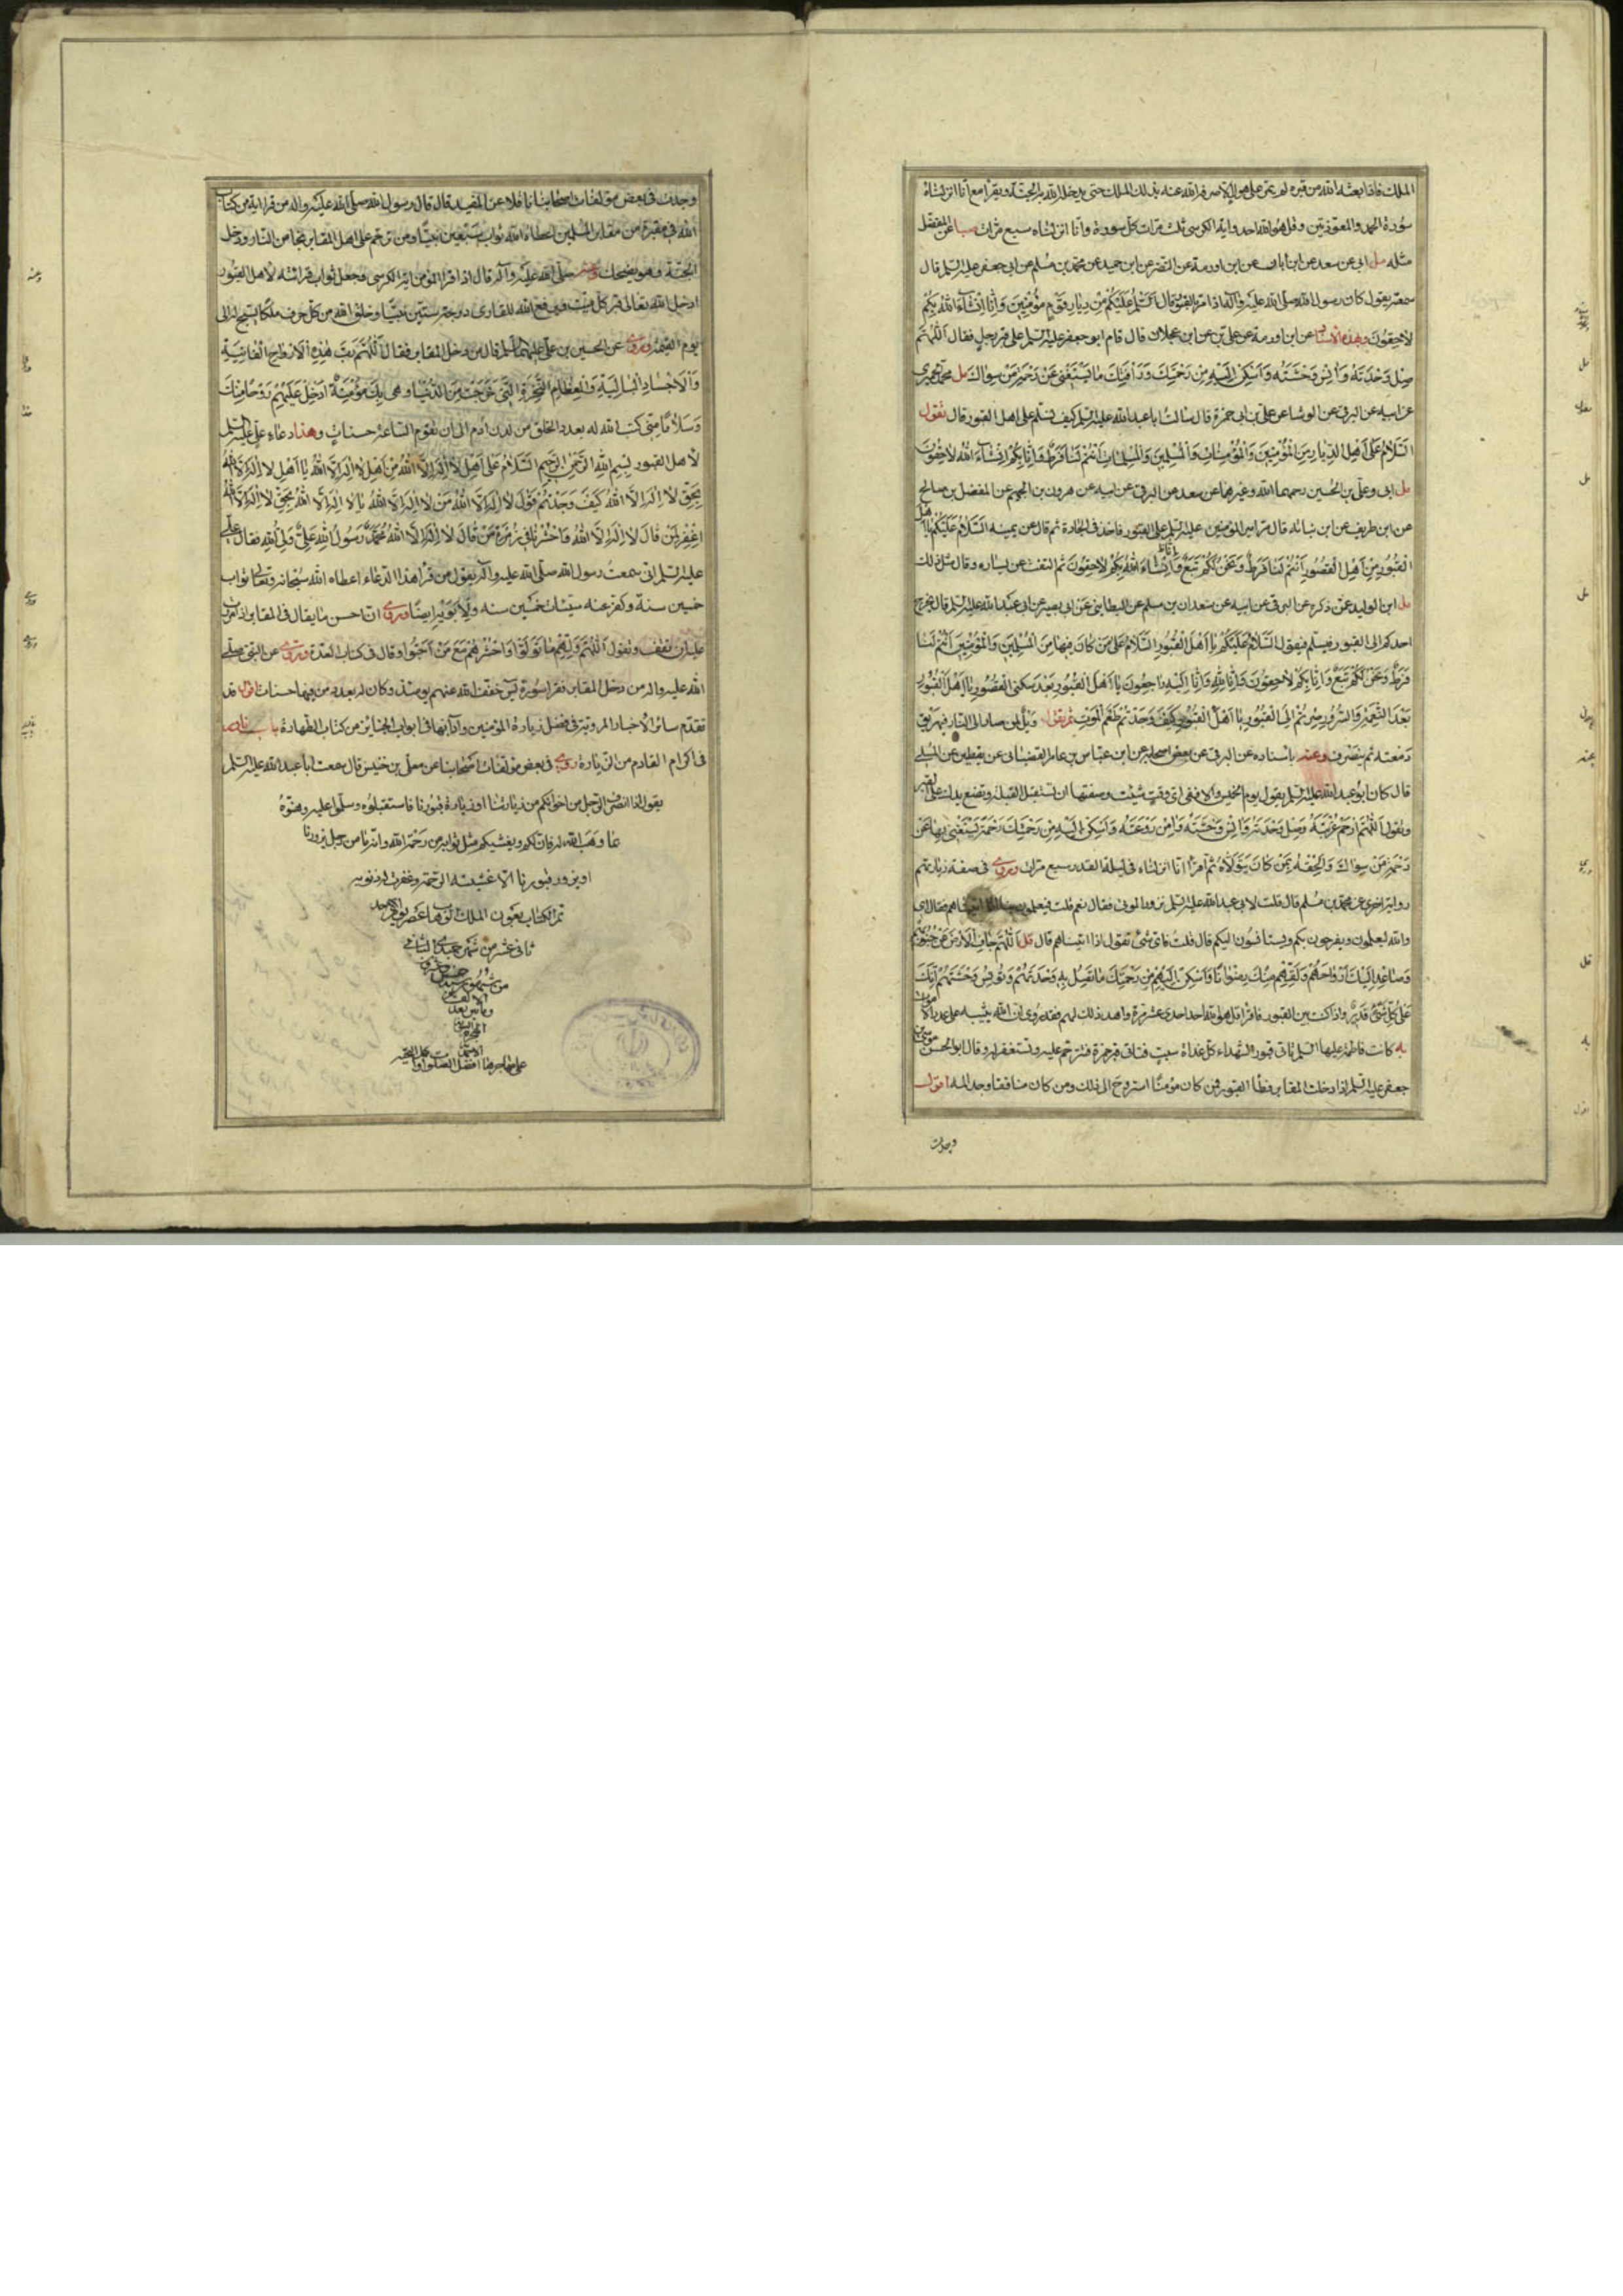 الملك فاذا بعثه الله من قبره لم يمر على هول الا صرفه الله عنه بذلك الملك حتى يدخله الله به الجنة ويقرأ مع انا انزلناه
سورة الحمد والمعوذتين وقل هو الله احد واية الكرسي ثلث مرات كل سورة وانا انزلناه سبع مرات صبا عن المفضل
مثله مل ابى عن سعد عن ابن ابان عن ابن اورمة عن النضر عن ابن حميد عن محمد بن مسلم عن ابى جعفر عليه السلم قال
سمعته يقول كان رسول الله صلى الله عليه وآله اذا مر بالقبور قال السلم عليكم من ديار قوم مؤمنين وانا انشاء الله بكم
لاحقون وبهذه الاسناد عن ابن اورمة عن على بن عن ابن عجلان قال قام ابو جعفر عليه السلم على قبر رجل فقال اللهم
صل وحدته وانس وحشته واسكن اليه من رحمتك ورافتك ما يستغنى عن رحمة من سواك مل محمد الحميرى
عن ابيه عن البرقى عن الوشا عن على بن ابى حمزة قال سالت ابا عبد الله عليه السلم كيف نسلم على اهل القبور قال تقول
السلام على اهل الديار من المؤمنين والمؤمنات والمسلمين والمسلمات انتم لنا فرط وانا بكم انشاء الله لاحقون
مل ابى وعلى بن الحسين رحمهما الله وغيرهما عن سعد عن البرقى عن ابيه عن هرون بن الجهم عن المفضل بن صالح
عن ابن طريف عن ابن نباته قال مر امير المؤمنين عليه السلم على القبور فاخذ فى الجادة ثم قال عن يمينه السلام عليكم يا اهل
القبور من اهل القصور انتم لنا فرط ونحن لكم تبع وانا انشاء الله بكم لاحقون ثم التفت عن يساره وقال مثل ذلك
مل ابن الوليد عمن ذكره عن البرقى عن ابيه عن سعدان بن مسلم عن البطاينى عن ابى بصير عن ابى عبد الله عليه السلم قال يخرج
احدكم الى القبور فيسلم فيقول السلام عليكم يا اهل القبور السلام على من كان فيها من المسلمين والمؤمنين انتم لنا
فرط ونحن لكم تبع وانا بكم لاحقون وانا لله وانا اليه راجعون يا اهل القبور بعد سكنى القصور يا اهل القبور
بعد النعيم والسرور صرتم الى القبور يا اهل القبور كيف وجدتم طعم الموت ثم يقول ويل لمن صار الى النار فيهريق
دمعته ثم ينصرف وعنه باسناده عن البرقى عن بعض اصحابه عن ابن عباس بن عامر القصبانى عن يقطين عن المسلى
قال كان ابو عبد الله عليه السلم يقول يوم الخميس والا ففى اى وقت شئت وصفتها ان تستقبل القبلة وتضع يدك على القبر
وتقول اللهم ارحم غربته وصل وحدته وانس وحشته وامن روعته واسكن اليه من رحمتك رحمة يستغنى بها عن
رحمة من سواك والحقه بمن كان يتولاه ثم اقرا انا انزلناه فى ليلة القدر سبع مرات وروى فى صفة زيارتهم
رواية اخرى عن محمد بن مسلم قال قلت لابى عبد الله عليه السلم نزور الموتى فقال نعم قلت فيعلمون بنا اذا اتيناهم فقال اى
والله ليعلمون ويفرحون بكم ويستانسون اليكم قال قلت فاى شئ تقول اذا اتيناهم قال قل اللهم جاف الارض عن جنوبهم
وصاعد اليك ارواحهم ولقهم منك رضوانا واسكن اليهم من رحمتك ما تصل به وحدتهم وتونس وحشتهم انك
على كل شئ قدير واذا كنت بين القبور فاقرا قل هو الله احد احدى عشرة مرة واهد ذلك لهم فقد روى ان الله يثيبه على عدد الاموات
يه كانت فاطمة عليها السلم تاتى قبور الشهداء كل غداة سبت فتاتى قبر حمزة فتترحم عليه وتستغفر له وقال ابو الحسن موسى بن
جعفر عليه السلم اذا دخلت المقابر فطأ القبور فمن كان مؤمنا استروح الى ذلك ومن كان منافقا وجد المه اقول
وجدت
وجدت فى بعض مؤلفات اصحابنا ناقلا عن المفيد قال قال رسول الله صلى الله عليه واله من قرا اية من كتاب
الله فى مقبرة من مقابر المسلمين اعطاه الله ثواب سبعين نبيا ومن ترحم على اهل المقابر نجا من النار ودخل
الجنة وهو يضحك وعنه صلى الله عليه وآله قال اذا قرا المؤمن اية الكرسى وجعل ثواب قرائته لاهل القبور
ادخل الله تعالى قبر كل ميت ويرفع الله للقارى درجة ستين نبيا وخلق الله من كل حرف ملكا يسبح له الى
يوم القيمة وروى عن الحسين بن على عليهما السلم قال من دخل المقابر فقال اللهم رب هذه الارواح الفانية
والاجساد البالية والعظام النخرة التى خرجت من الدنيا وهى بك مؤمنة ادخل عليهم روحا منك
وسلاما منى كتب الله له بعدد الخلق من لدن ادم الى ان تقوم الساعة حسنات وهذا دعاء على عليه السلم
لاهل القبور بسم الله الرحمن الرحيم السلام على اهل لا اله الا الله من اهل لا اله الا الله يا اهل لا اله الا الله
بحق لا اله الا الله كيف وجدتم قول لا اله الا الله من لا اله الا الله يا لا اله الا الله بحق لا اله الا الله
اغفر لمن قال لا اله الا الله واحشرنا فى زمرة من قال لا اله الا الله محمد رسول الله على ولى الله فقال على
عليه السلم انى سمعت رسول الله صلى الله عليه وآله يقول من قرا هذا الدعاء اعطاه الله سبحانه وتعالى ثواب
خمسين سنة وكفر عنه سيئات خمسين سنه ولابويه ايضا وروى ان احسن ما يقال فى المقابر اذا مررت
عليه ان تقف وتقول اللهم ولهم ما تولوا واحشرهم مع من احبوا وقال فى كتاب العدة وروى عن النبى صلى
الله عليه واله من دخل المقابر فقرا سورة يس خفف الله عنهم يومئذ وكان له بعدد من فيها حسنات اقول قد
تقدم سائر الاخبار المروية فى فضل زيارة المؤمنين وآدابها فى ابواب الجنايز من كتاب الطهارة باب نادر
فى اكرام القادم من الزيارة روى فى بعض مؤلفات اصحابنا عن معلى بن خنيس قال سمعت ابا عبد الله عليه السلم
يقول اذا انصرف الرجل من اخوانكم من زيارتنا او زيارة قبورنا فاستقبلوه وسلموا عليه وهنوه
بما وهب الله له فان لكم مثل ثوابه ويغشيكم من رحمة الله وانه ما من رجل يزورنا
او يزور قبورنا الا غشيته الرحمة وغفرت له ذنوبه
تم الكتاب بعون الملك الوهاب عصر يوم الاحد
ثانى عشر من شهر جمادى الثانى
من شهور سنة
والمائتين بعد
الالف
من الهجرة
على هاجرها افضل الصلوات